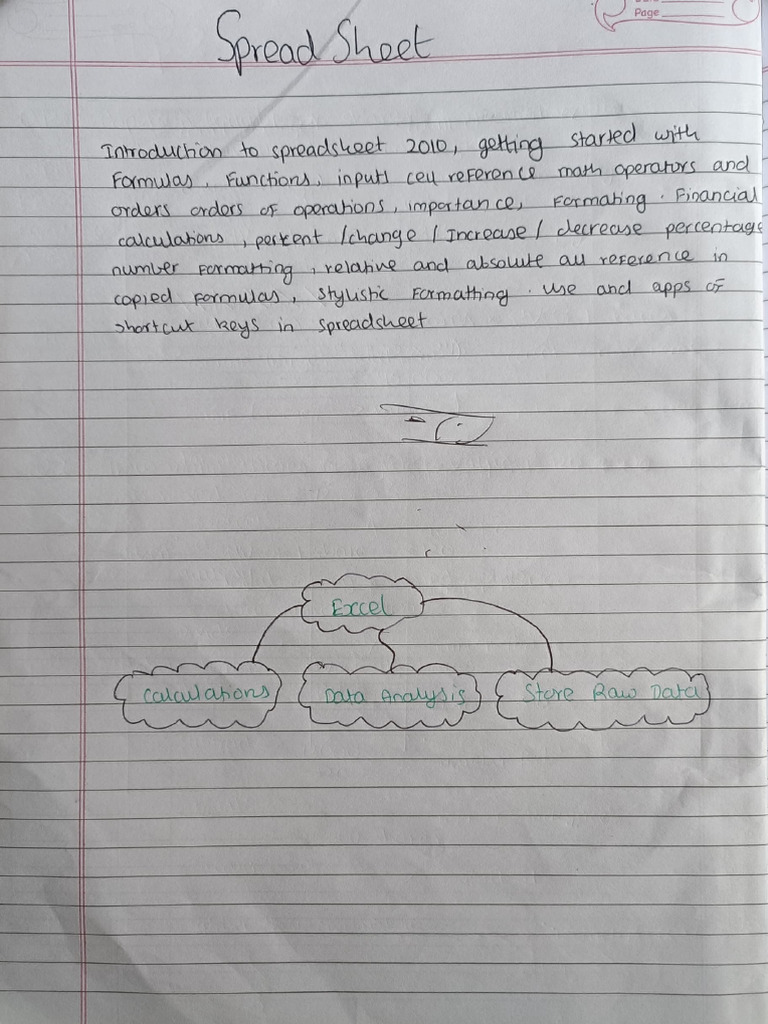 Page
Spread Sheet
Introduction to spreadsheet 2010, getting started with
Formulas, Functions, inputs cell reference math operators and
orders orders of operations, importance, Formating. Financial
calculations, percent /change / Increase / decrease percentage
number Formatting, relative and absolute all reference in
copied Formulas, Stylistic Formatting. Use and apps of
shortcut keys in spreadsheet
Excel
Calculations Data Analysis Store Raw Data